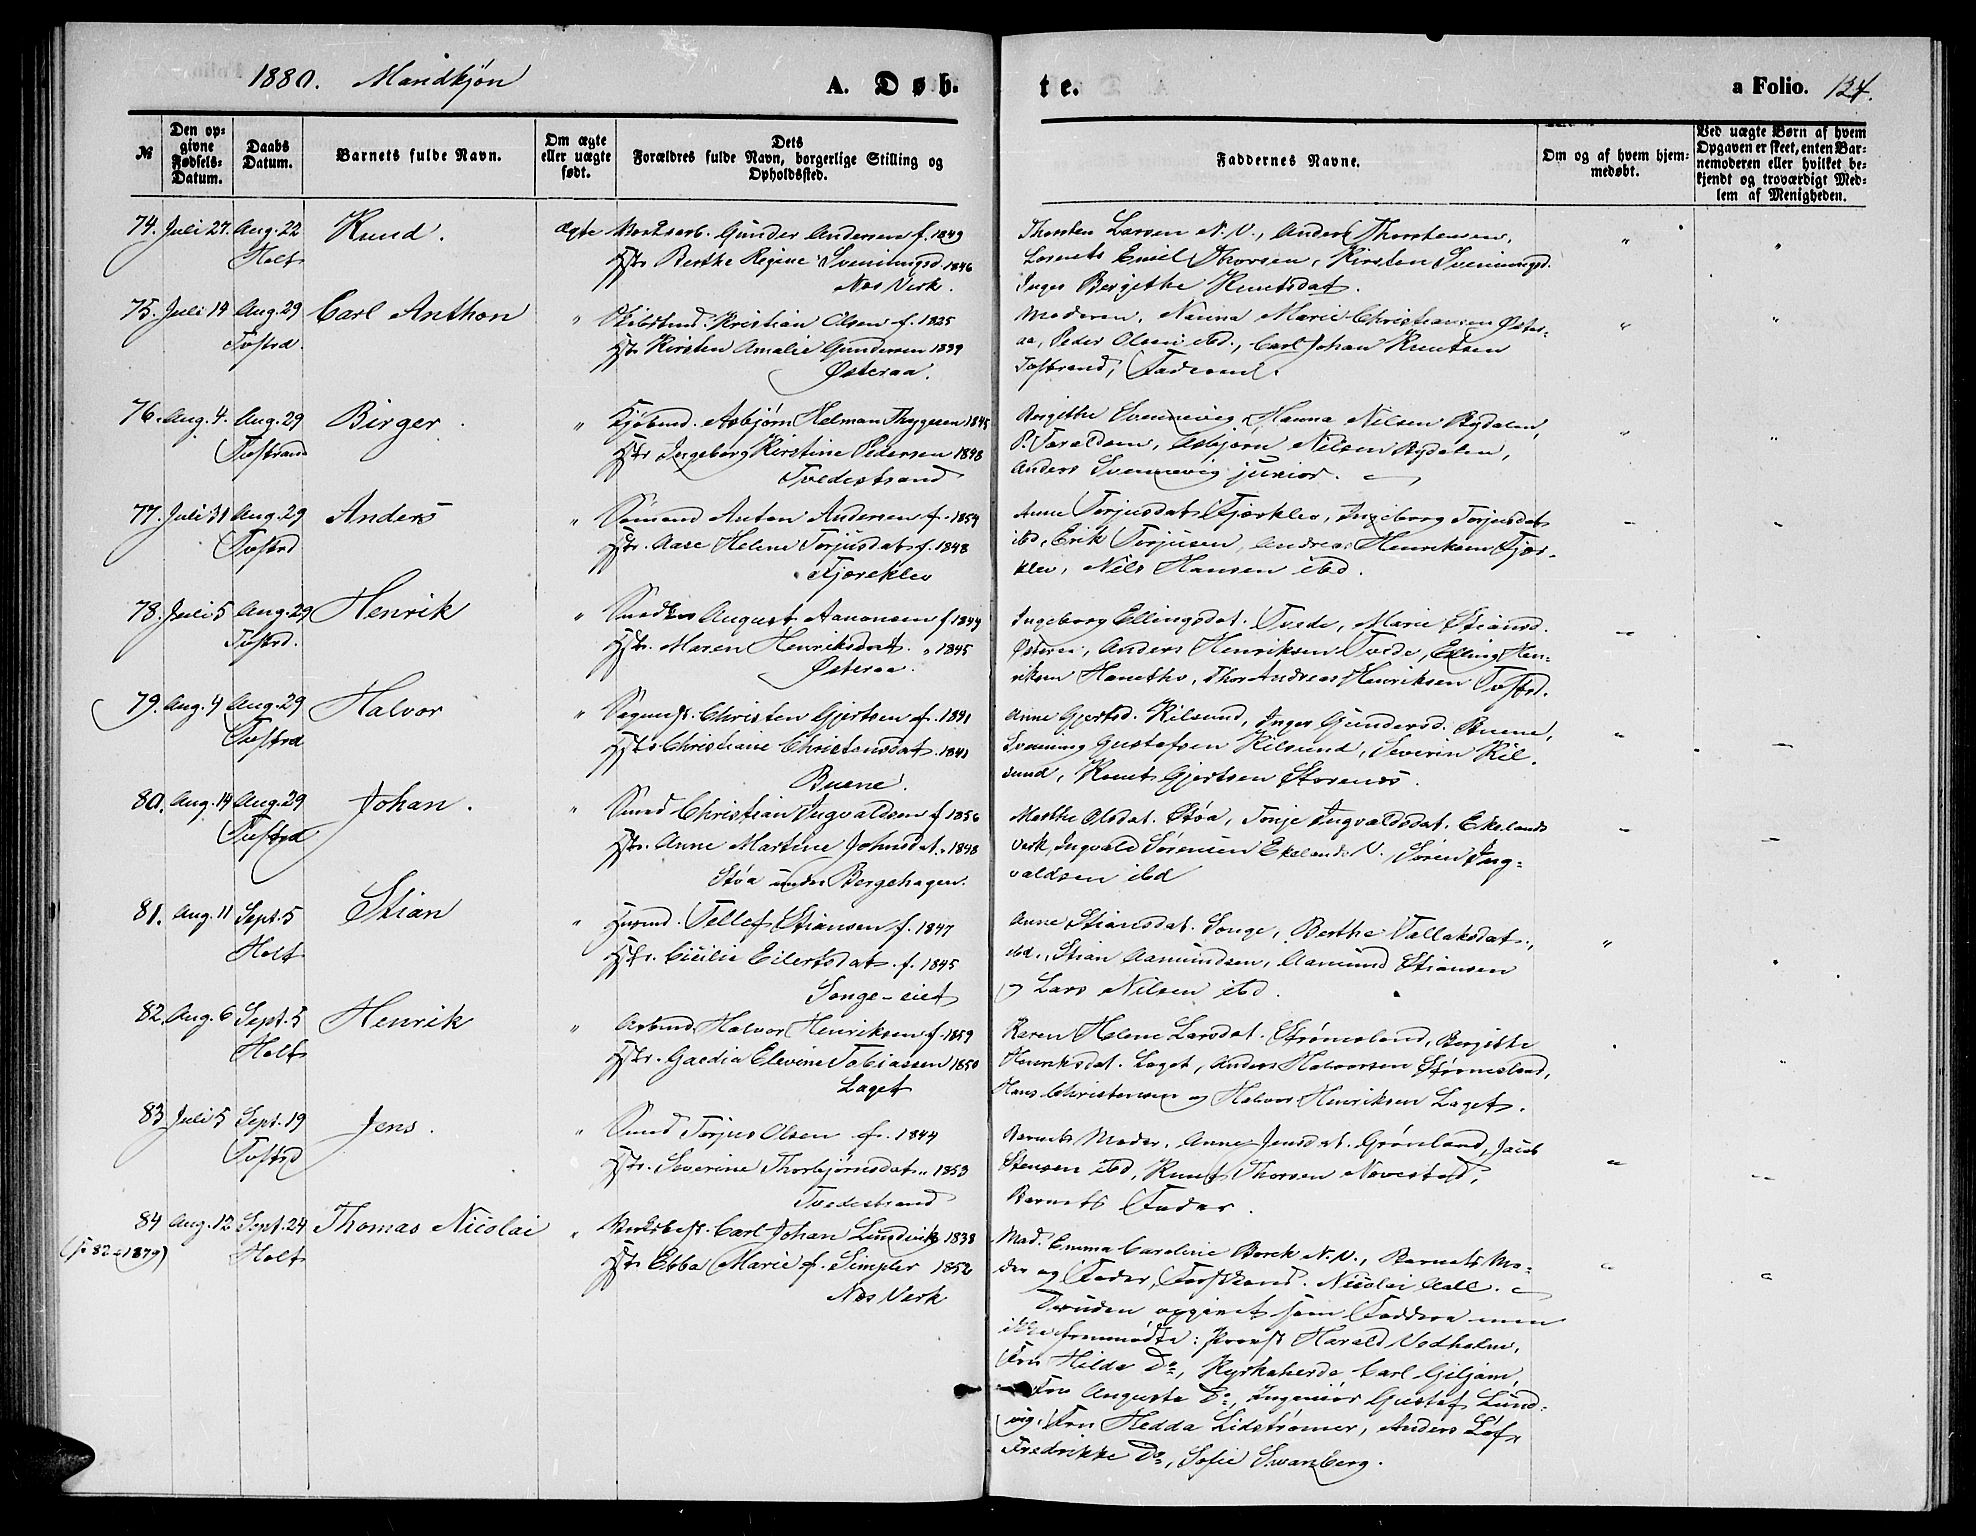 1880. Mandkjøn
A. Døb-
te.
a Folio. 124.
№
Den op-
givne
Fødsels-
Datum.
Daabs
Datum.
Barnets fulde Navn.
Om ægte
eller uægte
født.
Dets
Forældres fulde Navn, borgerlige Stilling og
Opholdssted.
Faddernes Navne.
Om og af hvem hjem-
medøbt.
Ved uægte Børn af hvem
Opgaven er skeet, enten Bar-
nemoderen eller hvilket be-
kjendt og troværdigt Med-
lem af Menigheden.
74. Juli 27. Aug. 22 Knud. ægte Gunder Andersen f. 1849
Holt Hstr. Berthe Regine Sveinungsd. 1846
Nes Verk.
Thorsten Larsen N. V., Anders Thorstensen,
Emil Thorsen, Kirsten Sveinungsd.
Inger Bergithe Knutsdat.
75. Juli 14 Aug. 29 Carl Anthon " Kristian Olsen f. 1825
Tvstrd. Hstr. Kirsten Amalie Gundersen 1839
Østeraa.
Moderen, Nanna Marie Christiansen Øster-
aa, Peder Olsen ibd., Carl Johan Knutsen
Tvstrand, Faderen.
76. Aug. 4. Aug. 29 Birger. " Kjøbmd. Asbjørn Helman Thygesen 1845
Tvstrand Hstr Ingeborg Kirstine Pedersen 1848
Tvedestrand
Bergithe Svennevig, Hanna Nilsen Bydalen,
P. Taraldsen, Asbjørn Nilsen Bydalen,
Anders Svennevig junior.
77. Juli 31 Aug. 29 Anders " Sømand Anton Andersen f. 1854
Tvstrd Hstr. Aase Helene Torjusdat f. 1848
Fjæreklev
Anne Torjusdat Fjæreklev, Ingeborg Torjusdat
ibd, Erik Torjusen, Andreas Henriksen Fjær-
klev, Nils Hansen ibd.
78. Juli 5 Aug. 29 Henrik " August Aanonsen f 1844
Tvstrd. Hstr. Maren Henriksdat. " 1845
Østeraa.
Ingeborg Ellingsdat. Tvede, Marie Stiansd.
Østeraa, Anders Henriksen Tvede, Elling Hen-
riksen Hanetho, Thor Andreas Henriksen Tvstrd.
79. Aug. 4 Aug. 29 Halvor " Christen Gjertsen f. 1841
Tvstrd Hstr. Christiane Christensdat. 1841
Buene.
Anne Gjertsd. Kilsund, Inger Gundersd. Buene,
Sveinung Gustafsen Kilsund, Severin Kil-
sund, Knut Gjertsen Storenes.
80. Aug. 14 Aug. 29 Johan. " Smed Christian Ingvaldsen f. 1856
Tvstrd Hstr. Anne Martine Johnsdat. " 1848
Støa under Bergehagen.
Marthe Olsdat. Støa, Tonje Ingvaldsdat. Ekelands
verk, Ingvald Sørensen Ekelands V. Søren Ing-
valdsen ibd
81. Aug. 11 Sept. 5 Stian " Husmd. Tellef Stiansen f. 1847
Holt Hstr. Cicilie Eilertsdat. f. 1845
Songe-eiet
Anne Stiansdat. Songe, Berthe Vallaksdat.,
ibd., Stian Aamundsen, Aamund Stiansen
og Lars Nilsen ibd.
82. Aug. 6 Sept. 5 Henrik " Arbmd. Halvor Henriksen f. 1859
Holt Hstr. Gaedia Elevine Tobiassen 1850
Laget
Karen Helene Larsdat. Strømsland, Bergitte
Henriksdat. Laget, Anders Halvorsen Strømsland,
Hans Christensen og Halvor Henriksen Laget.
83. Juli 5 Sept. 19 Jens. " Smed Torjus Olsen f. 1844
Tvstrd Hstr. Severine Thorbjørnsdat. " 1853
Tvedestrand
Barnets Moder, Anne Jensdat. Grønland, Jacob
Stensen ibd, Knut Thorsen Nævestad,
Barnets Fader.
84 Aug. 12 Sept. 24 Thomas Nicolai " Verksbest. Carl Johan Lundvik 1838
82 1879) Holt Hstr Ebba Marie f. Simpler 1852
Nes Verk
Mad. Emma Caroline Borck N. V., Barnets Mo-
der og Fader, Forstkand. Nicolai Aall.
Desuden opgivet som Faddere men
ikke fremmødte: Provst Harald Vedholm,
Fru Hilda Do, Kyrkoherde Carl Giljam,
Fru Augusta Do, Ingeniør Gustaf Lund-
vig, Fru Hedda Lidstrømer, Anders Løf,
Fredrikke Do, Sofie Swanberg.